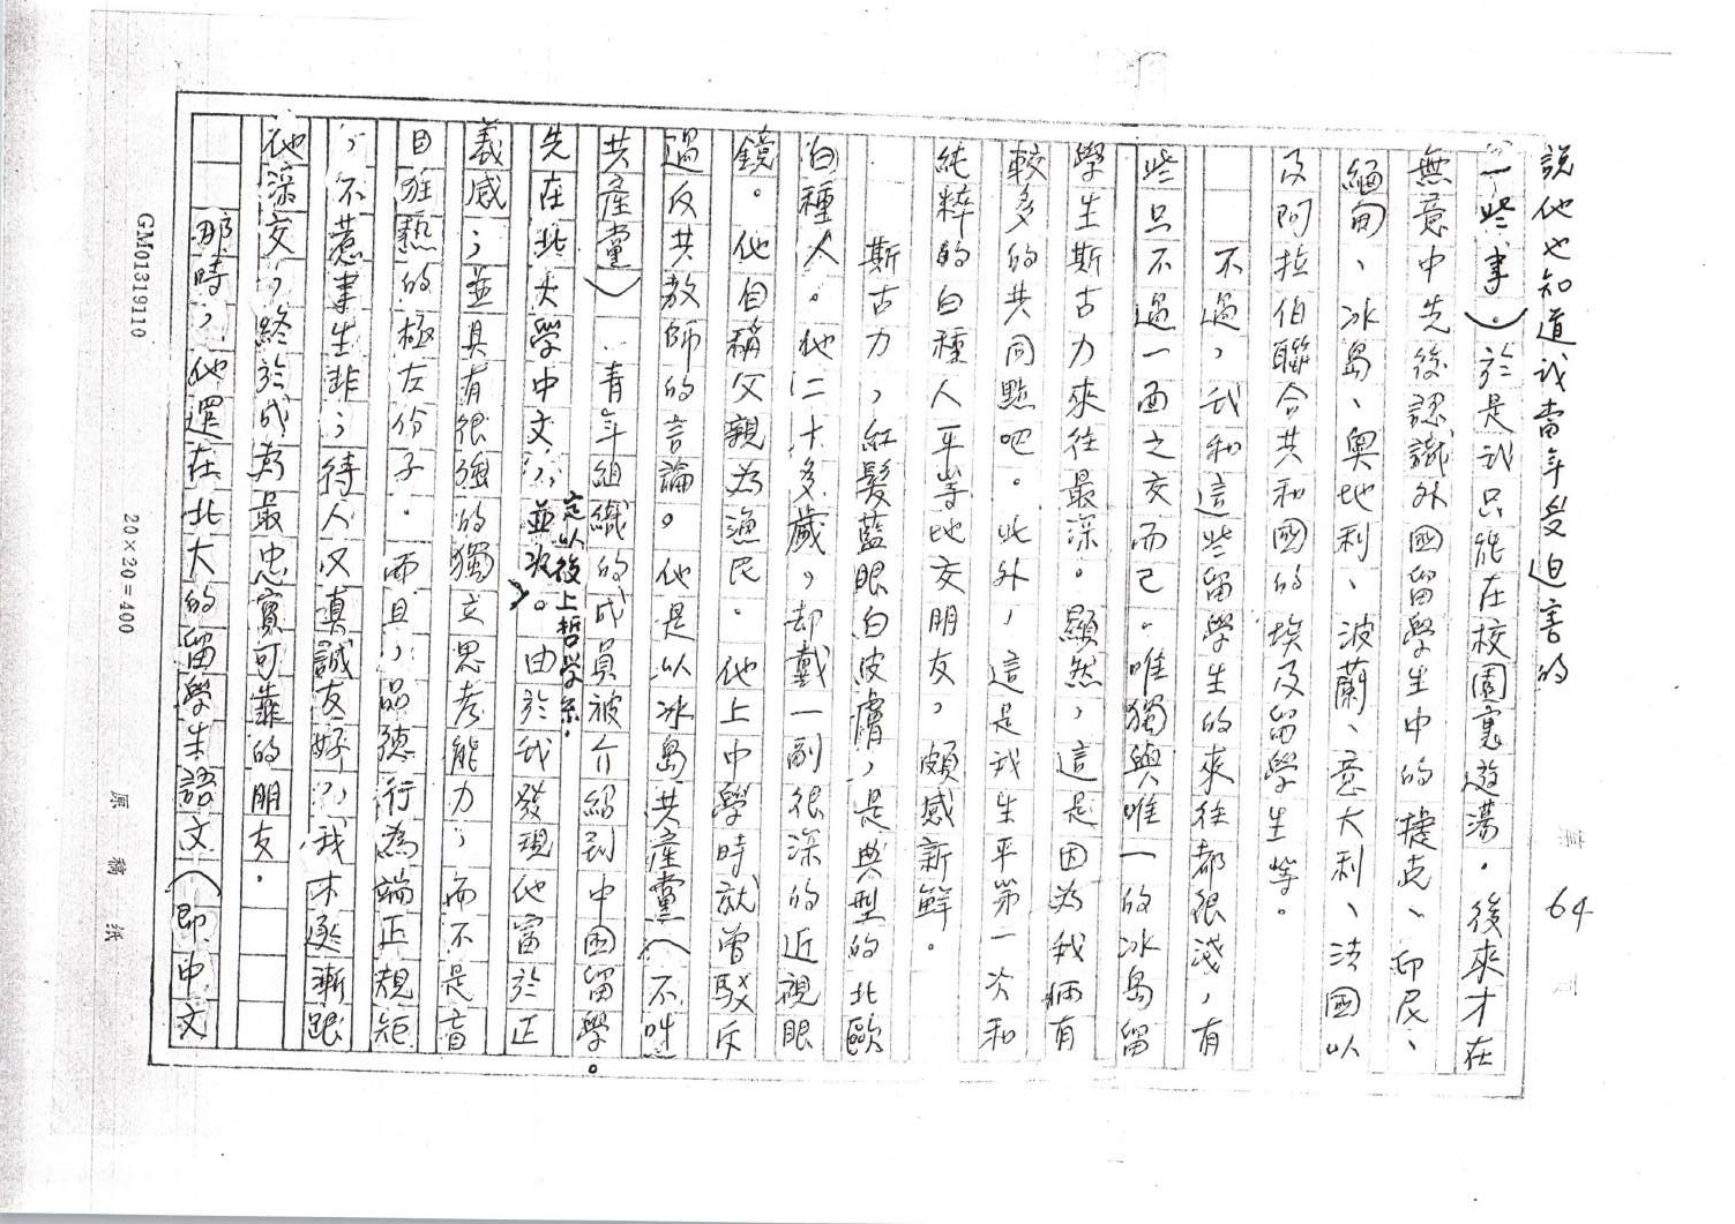 說他也知道我當年受迫害的
一些事）。於是我只能在校園裏遊蕩。後來才在
無意中先後認識外國留學生中的捷克、印尼、
緬甸、冰島、奧地利、波蘭、意大利、法國以
及阿拉伯聯合共和國的埃及留學生等。
不過，我和這些留學生的來往都很淺，有
些只不過一面之交而已。唯獨與唯一的冰島留
學生斯古力來往最深。顯然，這是因為我倆有
較多的共同點吧。此外，這是我生平第一次和
純粹的白種人平等地交朋友，頗感新鮮。
斯古力，紅髮藍眼白皮膚，是典型的北歐
白種人。他二十多歲，却戴一副很深的近視眼
鏡。他自稱父親為漁民。他上中學時就曾駁斥
過反共教師的言論。他是以冰島共產黨（不叫
共產黨）青年組織的成員被介紹到中國留學。
先在北大學中文，並決定以後上哲学系。由於我發現他富於正
義感；並具有很強的獨立思考能力；而不是盲
目狂熱的極左份子。而且，品德行為端正規矩
，不惹事生非；待人又真誠友好，我才逐漸跟
他深交，終於成為最忠實可靠的朋友。
那時，他還在北大的留學生語文（即中文
64
GM01319110
20×20=400
原稿紙